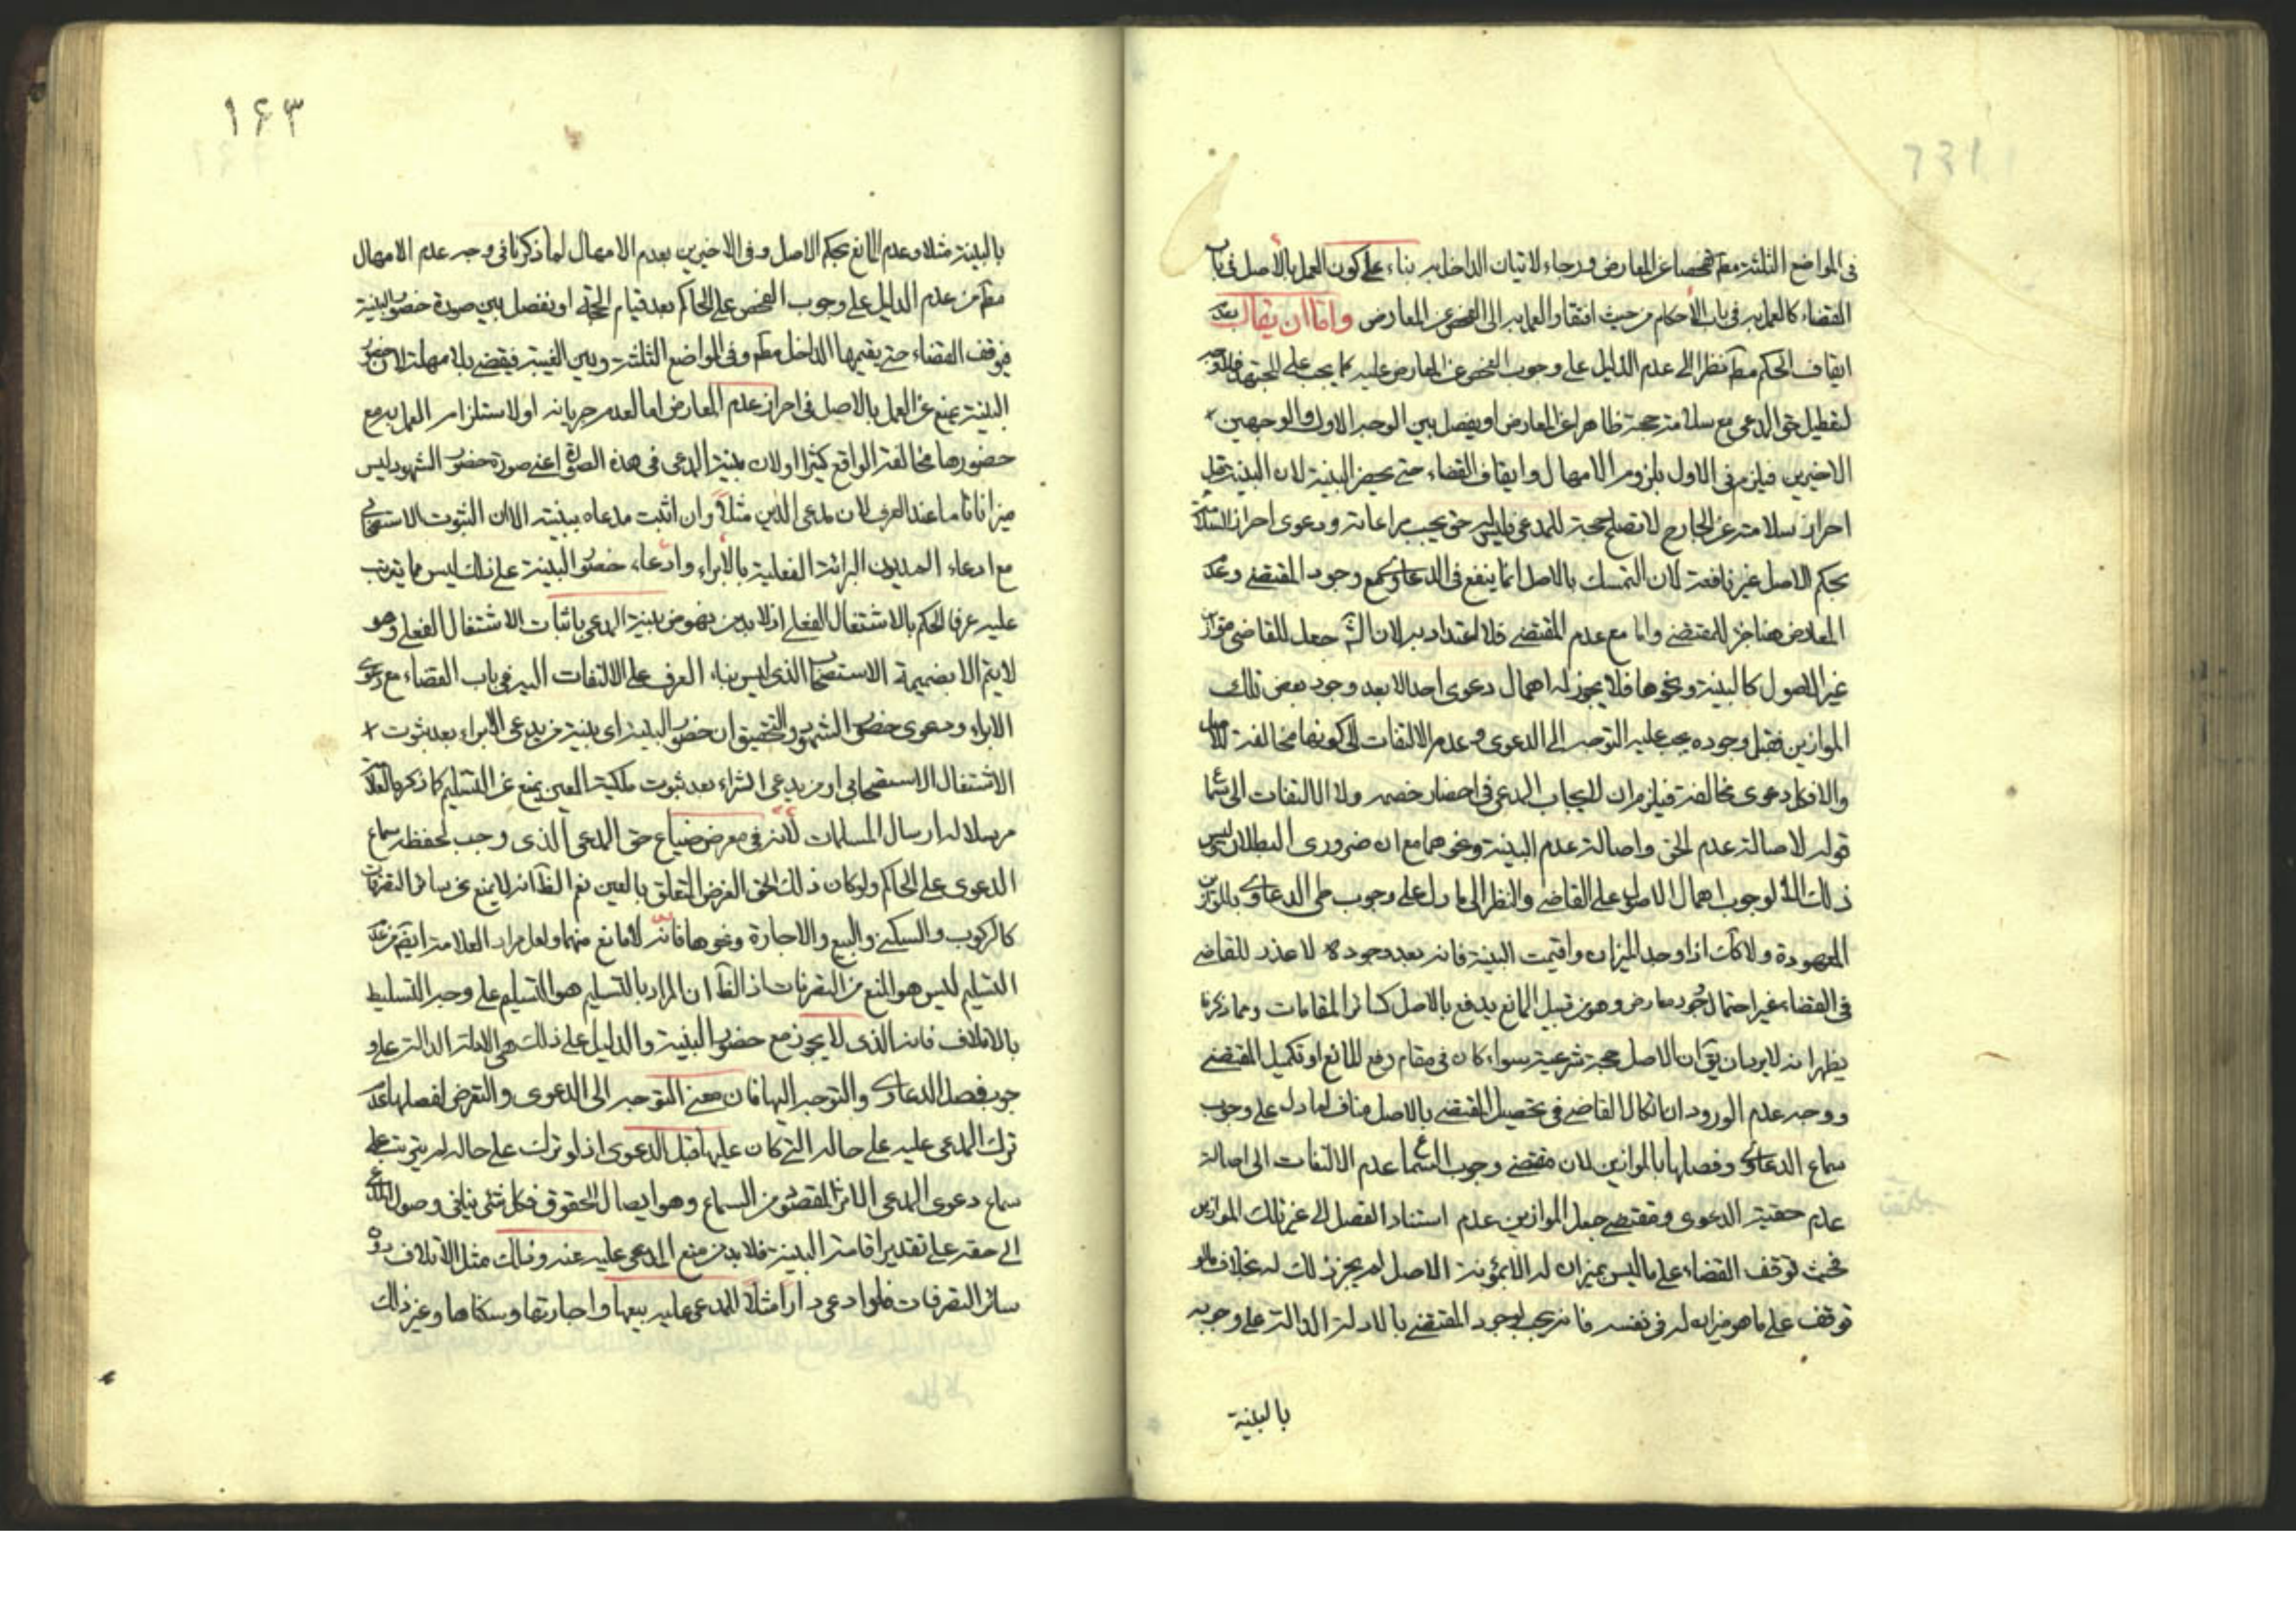 في المواضع الثلثة مطم فحصا عن المعارض ورجاء لاتيان الداخل به بناء على كون العمل بالاصل في باب
القضاء كالعمل به في باب الأحكام من حيث افتقار العمل به الى الفحص عن المعارض واما ان يقال بعدم
ايقاف الحكم مطم نظرا الى عدم الدليل على وجوب الفحص عن المعارض عليه كما يجب على المجتهد فلا وجه
لتعطيل حق المدعى مع سلامة حجته ظاهرا عن المعارض او يفصل بين الوجه الاول والوجهين
الاخيرين فيلزم في الاول بلزوم الامهال وايقاف القضاء حتى يحضر البينة لان البينة قبل
احراز سلامته عن الجارح لا تصلح حجة للمدعى فليس له حق يجب مراعاته ودعوى احراز السلامة
بحكم الاصل غير نافعة لان التمسك بالاصل انما ينفع في الدعاوى مع وجود المقتضى وعدم
المعارض هنا جزء للمقتضى واما مع عدم المقتضى فلا اعتداد به لان الش جعل للقاضى موازين
غير الاصول كالبينة ونحوها فلا يجوز له اهمال دعوى احد الا بعد وجود بعض تلك
الموازين فقبل وجوده يجب عليه التوجه الى الدعوى وعدم الالتفات الى كونها مخالفة للاصل
والا فكل دعوى مخالفة فيلزم ان لا يجاب المدعى في احضار خصمه ولا الالتفات الى سماع
قوله لاصالة عدم الحق واصالة عدم البينة ونحوهما مع انه ضرورى البطلان ليس
ذلك الا لوجوب اهمال الاصول على القاضى والنظر الى ما دل على وجوب طى الدعاوى بالموازين
المعهودة ولا كك اذا وجد الميزان واقيمت البينة فانه بعد وجوده لا عذر للقاضى
في القضاء غير احتمال وجود معارض وهو من قبيل المانع يدفع بالاصل كسائر المقامات ومما ذكرنا
يظهر انه لا يرد ان يق ان الاصل حجة شرعية سواء كان في مقام رفع المانع او تكميل المقتضى
ووجه عدم الورود ان اتكال القاضى في تحصيل المقتضى بالاصل مناف لما دل على وجوب
سماع الدعاوى وفصلها بالموازين لان مقتضى وجوب السماع عدم الالتفات الى اصالة
عدم حقية الدعوى ومقتضى جعل الموازين عدم استناد الفصل الى غير تلك الموازين
فحيث توقف القضاء على ما ليس بميزان له الا بمؤنة الاصل لم يجز ذلك له بخلاف ما لو
توقف على ما هو ميزان له في نفسه فانه يجب لوجود المقتضى بالادلة الدالة على وجوبه
بالبينة
۱۶۳
بالبينة مثلا وعدم المانع بحكم الاصل وفي الاخيرين بعدم الامهال لما ذكرنا في وجه عدم الامهال
مطم من عدم الدليل على وجوب الفحص على الحاكم بعد قيام الحجة او نفصل بين صورة حضور البينة
فيوقف القضاء حتى يقيمها الداخل مطم وفي المواضع الثلثة وبين الغيبة فيقضى بلا مهلة لان حضور
البينة يمنع عن العمل بالاصل في احراز عدم المعارض اما لعدم جريانه او لاستلزام العمل به مع
حضورها مخالفة الواقع كثيرا او لان بينة المدعى في هذه الصورة اعنى صورة حضور الشهود ليس
ميزانا تاما عند العرف لان مدعى الدين مثلا وان اثبت مدعاه ببينته الا ان الثبوت الاستصحابى
مع ادعاء المديون البرائة الفعلية بالابراء وادعاء حضور البينة على ذلك ليس مما يترتب
عليه عرفا الحكم بالاشتغال الفعلى اذ لا بد من نهوض بينة المدعى باثبات الاشتغال الفعلى وهو
لا يتم الا بضميمة الاستصحاب الذى ليس بناء العرف على الالتفات اليه في باب القضاء مع دعوى
الابراء ودعوى حضور الشهود والتحقيق ان حضور البينة اى بينة من يدعى الابراء بعد ثبوت
الاشتغال الاستصحابى او من يدعى الشراء بعد ثبوت ملكية العين يمنع عن التسليم كما ذكره العلامة
مرسلا له ارسال المسلمات لانه في معرض ضياع حق المدعى الذى وجب لحفظه سماع
الدعوى على الحاكم ولو كان ذلك الحق الغرض المتعلق بالعين نعم الظ انه لا يمنع عن سائر التصرفات
كالركوب والسكنى والبيع والاجارة ونحوها فانه لا مانع منها ولعل مراد العلامة ايضم من عدم
التسليم ليس هو المنع من التصرفات اذ الظ ان المراد بالتسليم هو التسليم على وجه التسليط
بالاتلاف فانه الذى لا يجوز مع حضور البينة والدليل على ذلك هى الادلة الدالة على و
جوب فصل الدعاوى والتوجه اليها فان معنى التوجه الى الدعوى والتعرض لفصلها عدم
ترك المدعى عليه على حاله التى كان عليها قبل الدعوى اذ لو ترك على حاله لم يترتب على
سماع دعوى المدعى الاثر المقصود من السماع وهو ايصال الحقوق فكل شئ ينافى وصول المدعى
الى حقه على تقدير اقامة البينة فلا بد من منع المدعى عليه عنه وذلك مثل الاتلاف دون
سائر التصرفات فلو ادعى دارا مثلا للمدعى عليه بيعها واجارتها وسكناها وغير ذلك